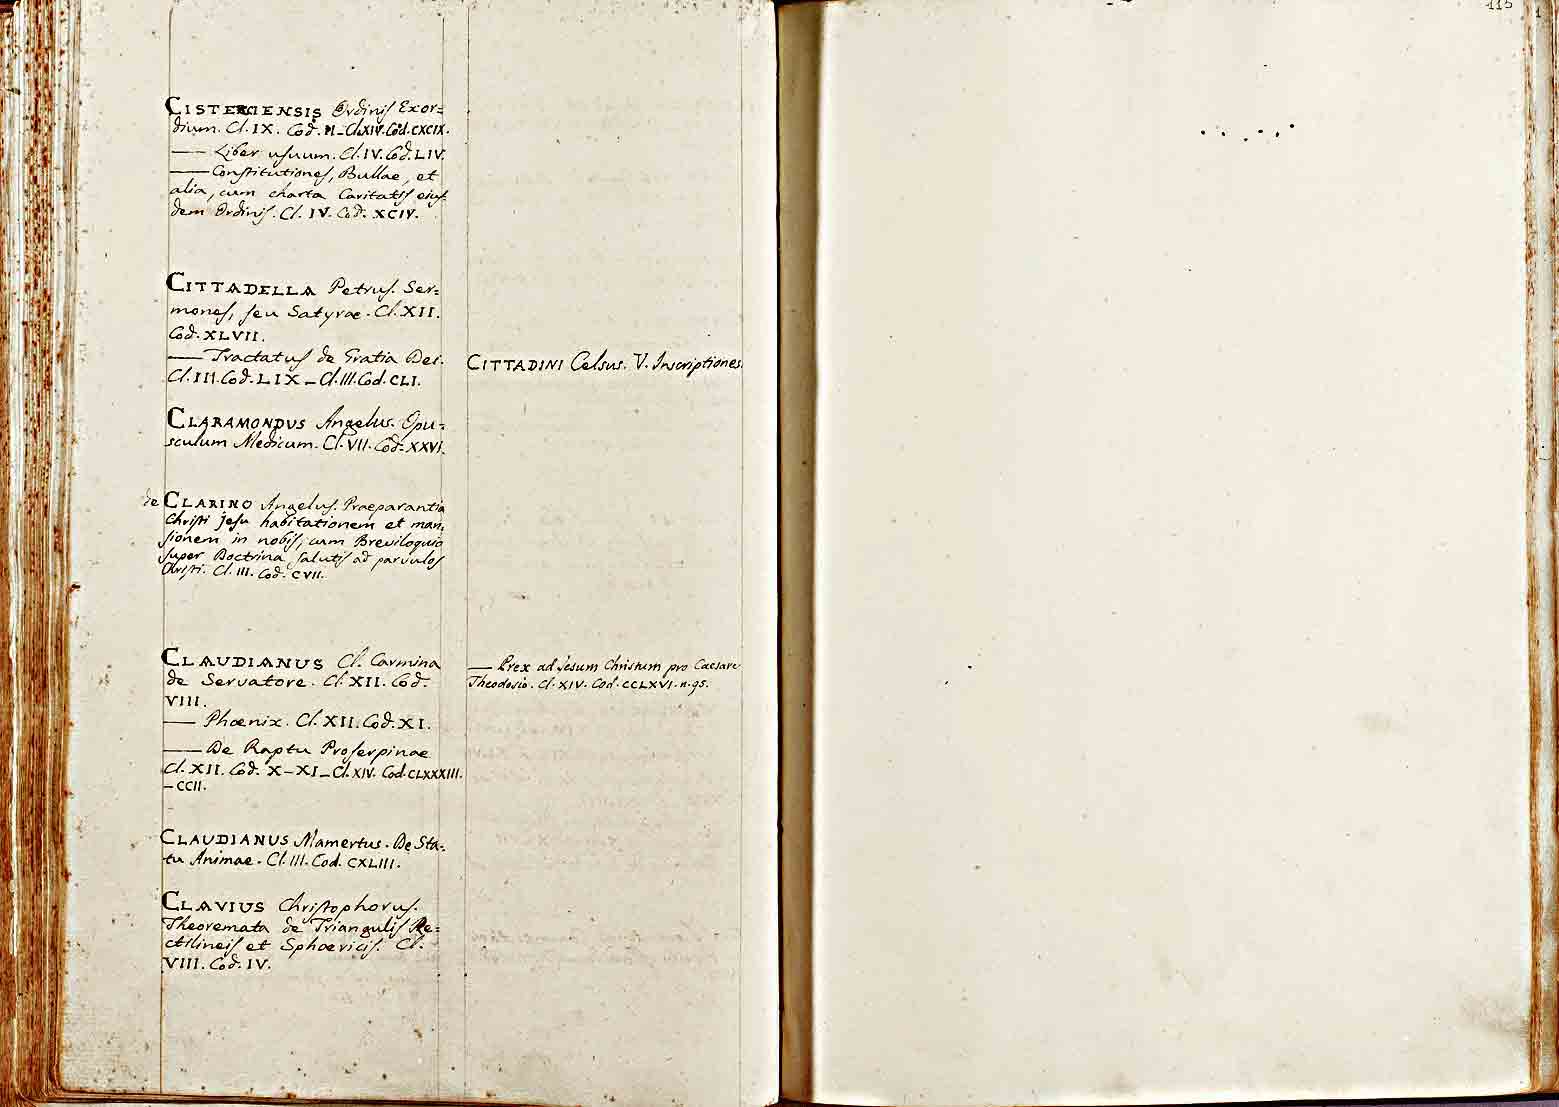 CISTERCIENSIS Ordinis Exor=
dium. Cl. IX. Cod. M–Cl.XIV. Cod. CXCIX.
— Liber usuum. Cl. IV. Cod. LIV.
— Constitutiones, Bullae, et
alia, cum charta Caritatis eius-
dem Ordinis. Cl. IV. Cod. XCIV.
CITTADELLA Petrus. Ser=
mones, seu Satyrae. Cl. XII.
Cod. XLVII.
— Tractatus de Gratia Dei.
Cl. III. Cod. LIX – Cl. III. Cod. CLI.
CLARAMONDUS Angelus. Opu=
sculum Medicum. Cl. VII. Cod. XXVI.
de CLARINO Angelus. Praeparantia
Christi Jesu habitationem et man,
sionem in nobis, cum Breviloquio
super Doctrina salutis ad parvulos
Christi. Cl. III. Cod. CVII.
CLAUDIANUS Cl. Carmina
de Servatore. Cl. XII. Cod.
VIII.
— Phoenix. Cl. XII. Cod. XI.
— De Raptu Proserpinae
Cl. XII. Cod. X–XI – Cl. XIV. Cod. CLXXXIII.
– CCII.
CLAUDIANUS Mamertus. De Sta-
tu Animae. Cl. III. Cod. CXLIII.
CLAVIUS Christophorus.
Theoremata de Triangulis Re=
ctilineis et Sphaericis. Cl.
VIII. Cod. IV.
CITTADINI Celsus. V. Inscriptiones.
— Prex ad Jesum Christum pro Caesare
Theodosio. Cl. XIV. Cod. CCLXVI. n. 95.
115